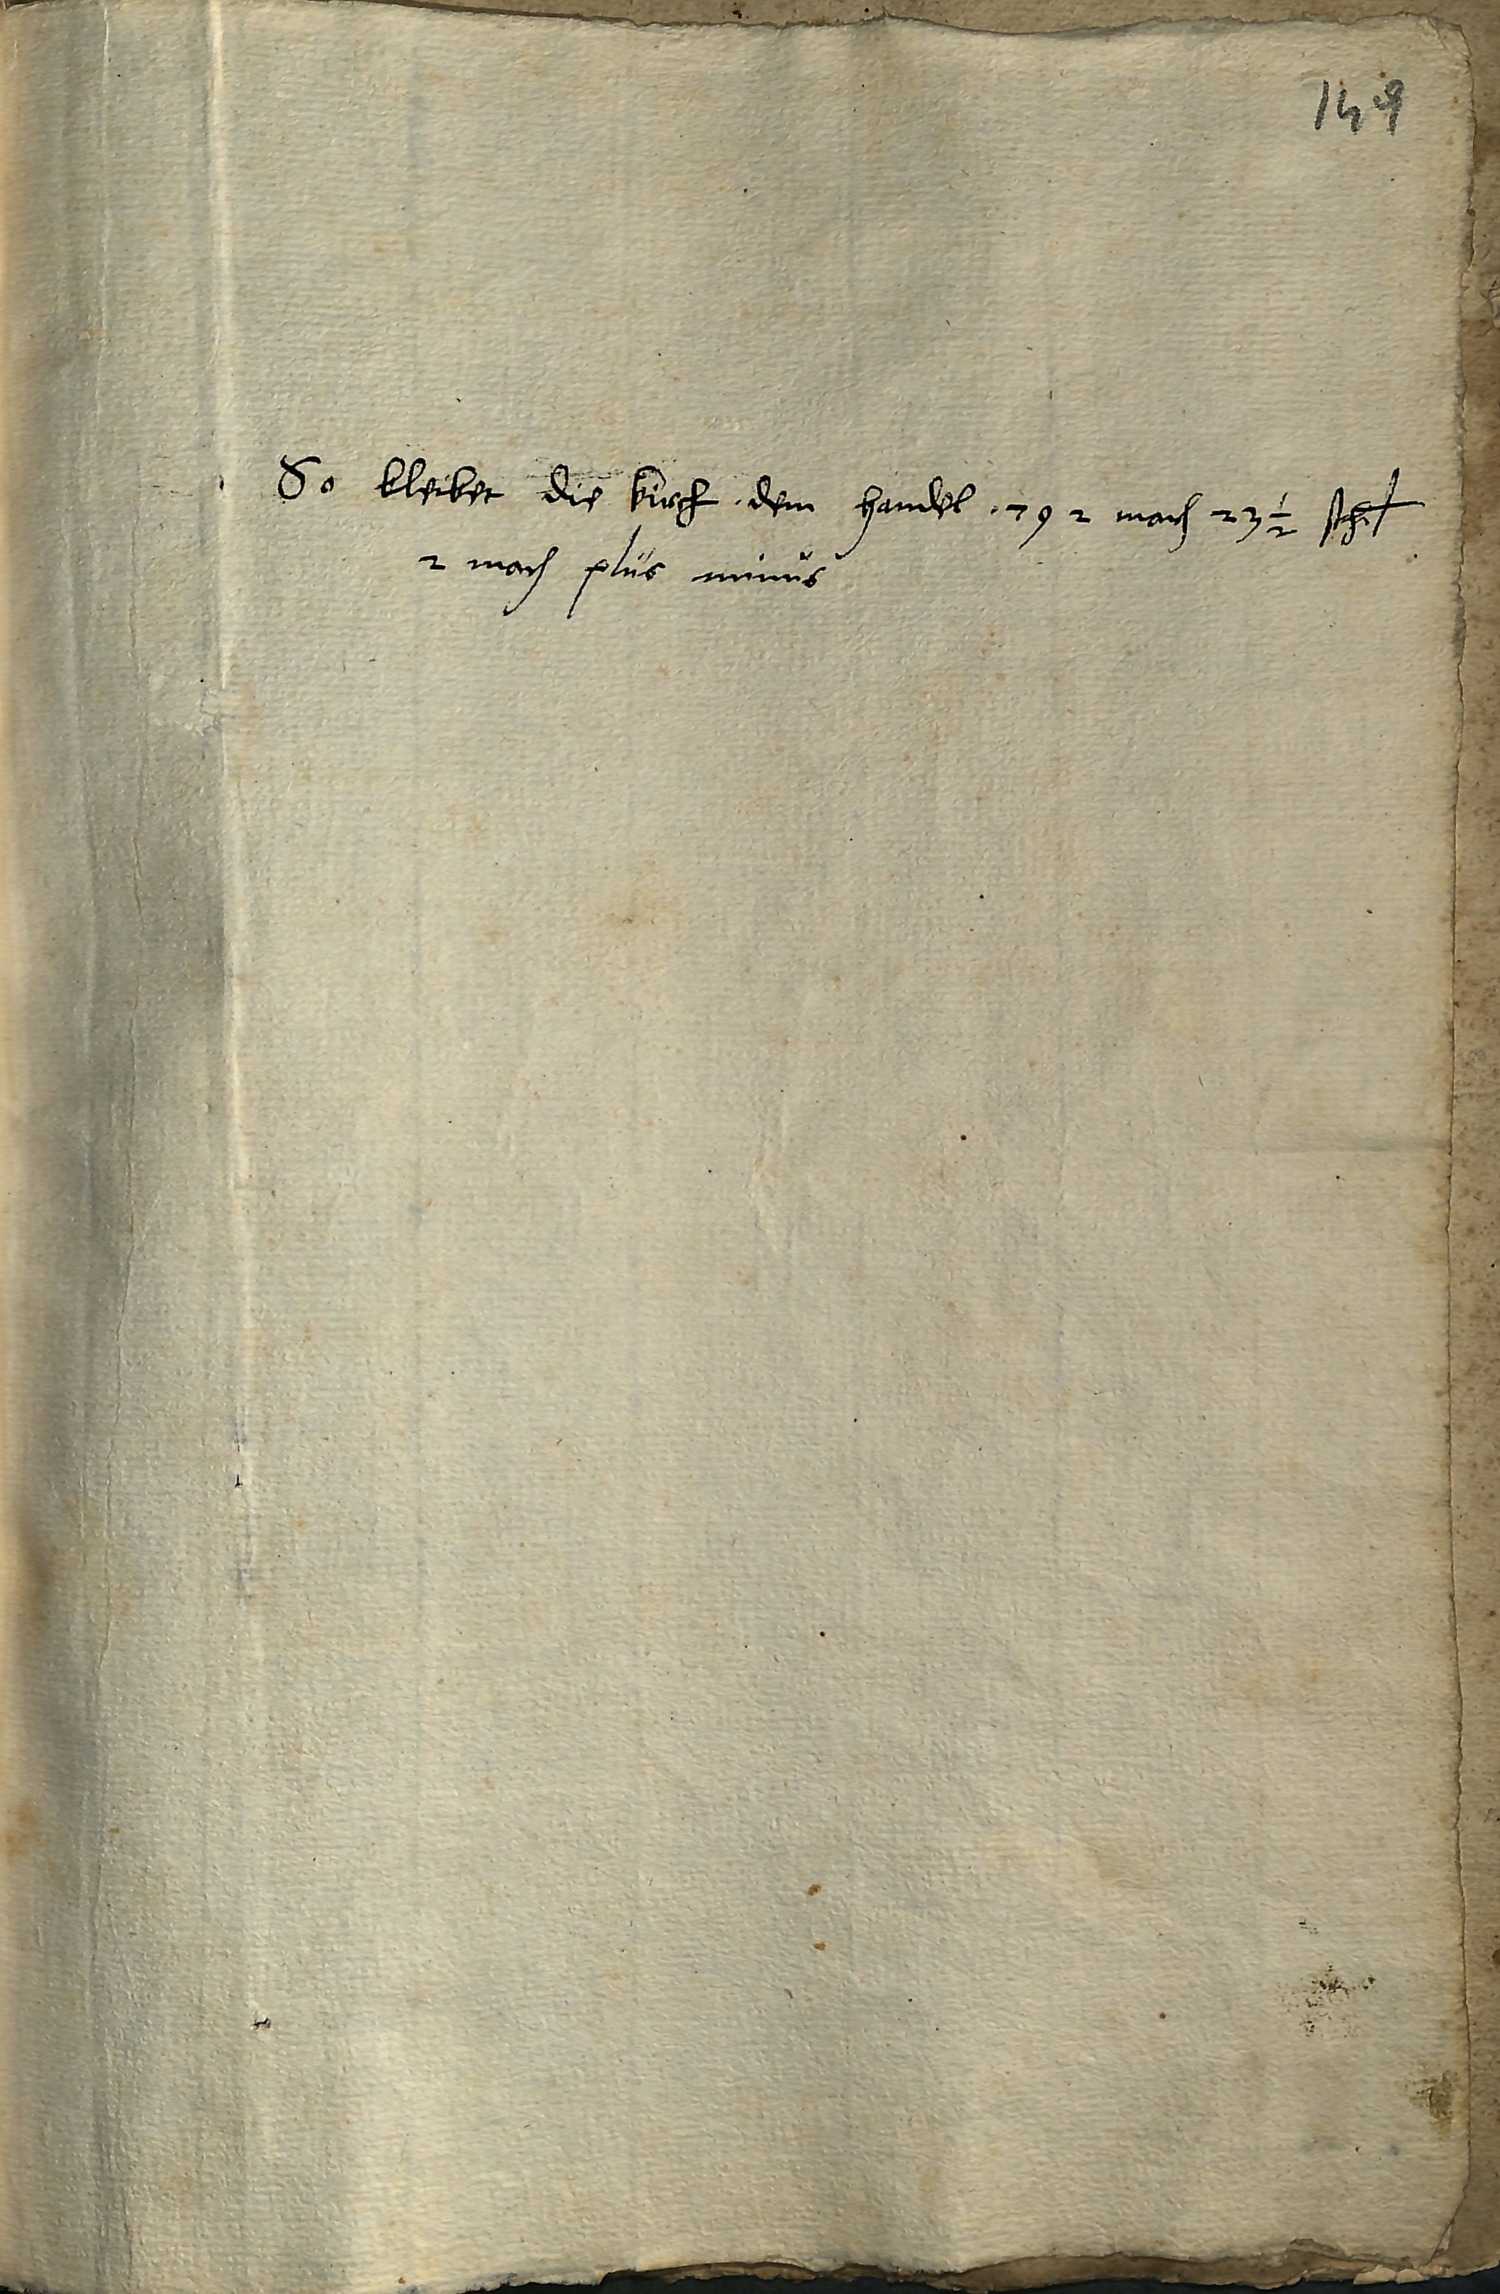 149
So bleibet die kirch dem handel 792 march 23 1/2 sch
2 march plus minus